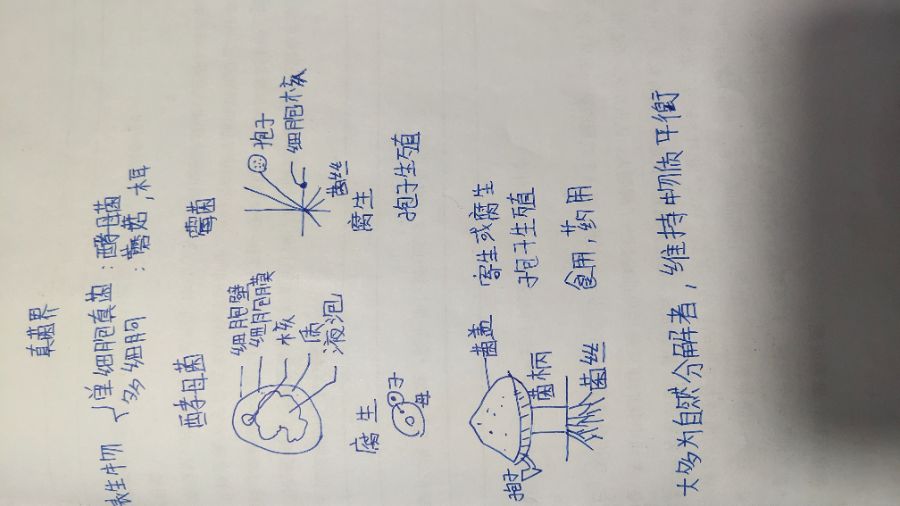 真菌界
代表生物 单细胞真菌:酵母菌
多细胞:蘑菇,木耳
酵母菌 霉菌
细胞壁
细胞膜
核
质
液泡
孢子
细胞核
菌丝
腐生 腐生
子
母
孢子生殖
菌盖
菌柄
菌丝
孢子
寄生或腐生
孢子生殖
食用,药用
大多为自然分解者,维持物质平衡